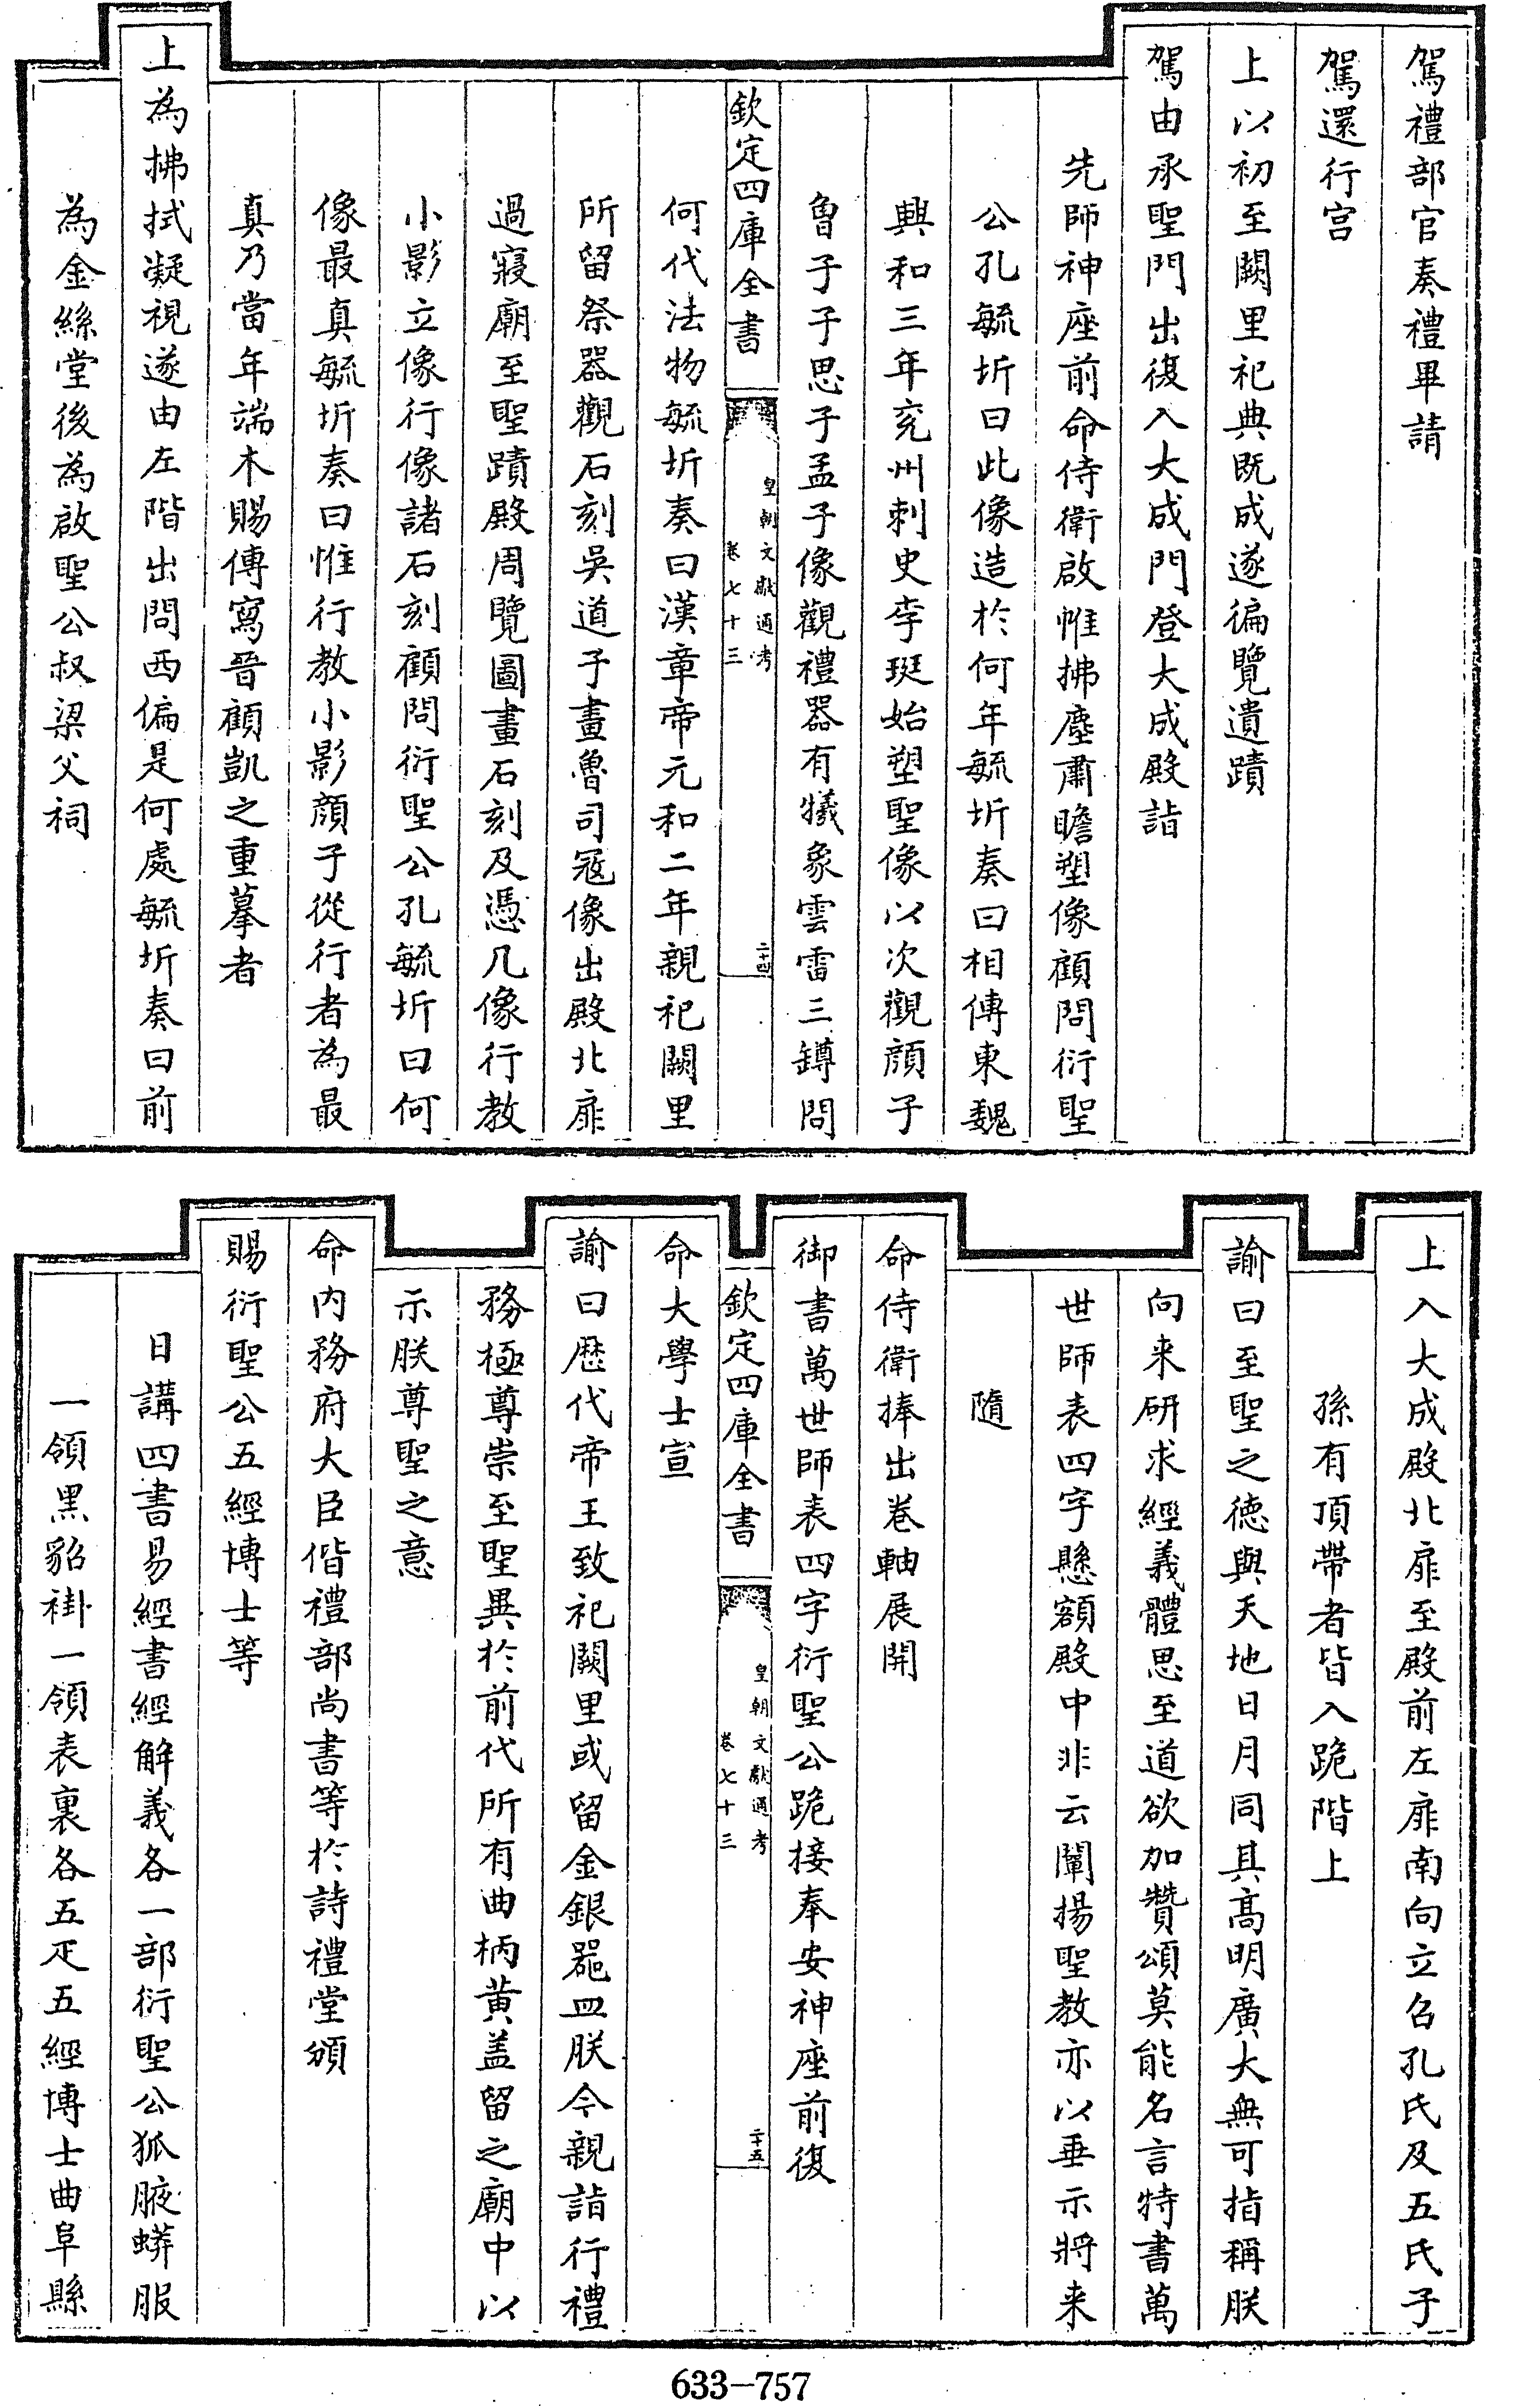 駕禮部官奏禮畢請
駕還行宫
上以初至闕里祀典既成遂徧覽遺蹟
駕由承聖門出復入大成門登大成殿詣
先師神座前命侍衛啟帷拂塵肅瞻塑像顧問衍聖
公孔毓圻曰此像造於何年毓圻奏曰相傳東魏
興和三年兖州刺史李珽始塑聖像以次觀顔子
曾子子思子孟子像觀禮器有犧象雲雷三罇問
欽定四庫全書
皇朝文獻通考
卷七十三
二十四
何代法物毓圻奏曰漢章帝元和二年親祀闕里
所留祭器觀石刻吳道子畫魯司寇像出殿北扉
過寢廟至聖蹟殿周覽圖畫石刻及憑几像行教
小影立像行像諸石刻顧問衍聖公孔毓圻曰何
像最真毓圻奏曰惟行教小影顔子從行者為最
真乃當年端木賜傳寫晉顧凱之重摹者
上為拂拭凝視遂由左階出問西偏是何處毓圻奏曰前
為金絲堂後為啟聖公叔梁父祠
上入大成殿北扉至殿前左扉南向立召孔氏及五氏子
孫有頂帶者皆入跪階上
諭曰至聖之德與天地日月同其高明廣大無可指稱朕
向来研求經義體思至道欲加贊頌莫能名言特書萬
世師表四字懸額殿中非云闡揚聖教亦以垂示將来
隨
命侍衛捧出卷軸展開
御書萬世師表四字衍聖公跪接奉安神座前復
欽定四庫全書
皇朝文獻通考
卷七十三
二十五
命大學士宣
諭曰歴代帝王致祀闕里或留金銀器皿朕今親詣行禮
務極尊崇至聖異於前代所有曲柄黄盖留之廟中以
示朕尊聖之意
命内務府大臣偕禮部尚書等於詩禮堂頒
賜衍聖公五經博士等
日講四書易經書經解義各一部衍聖公狐腋蟒服
一領黒貂褂一領表裏各五疋五經博士曲阜縣
633-757